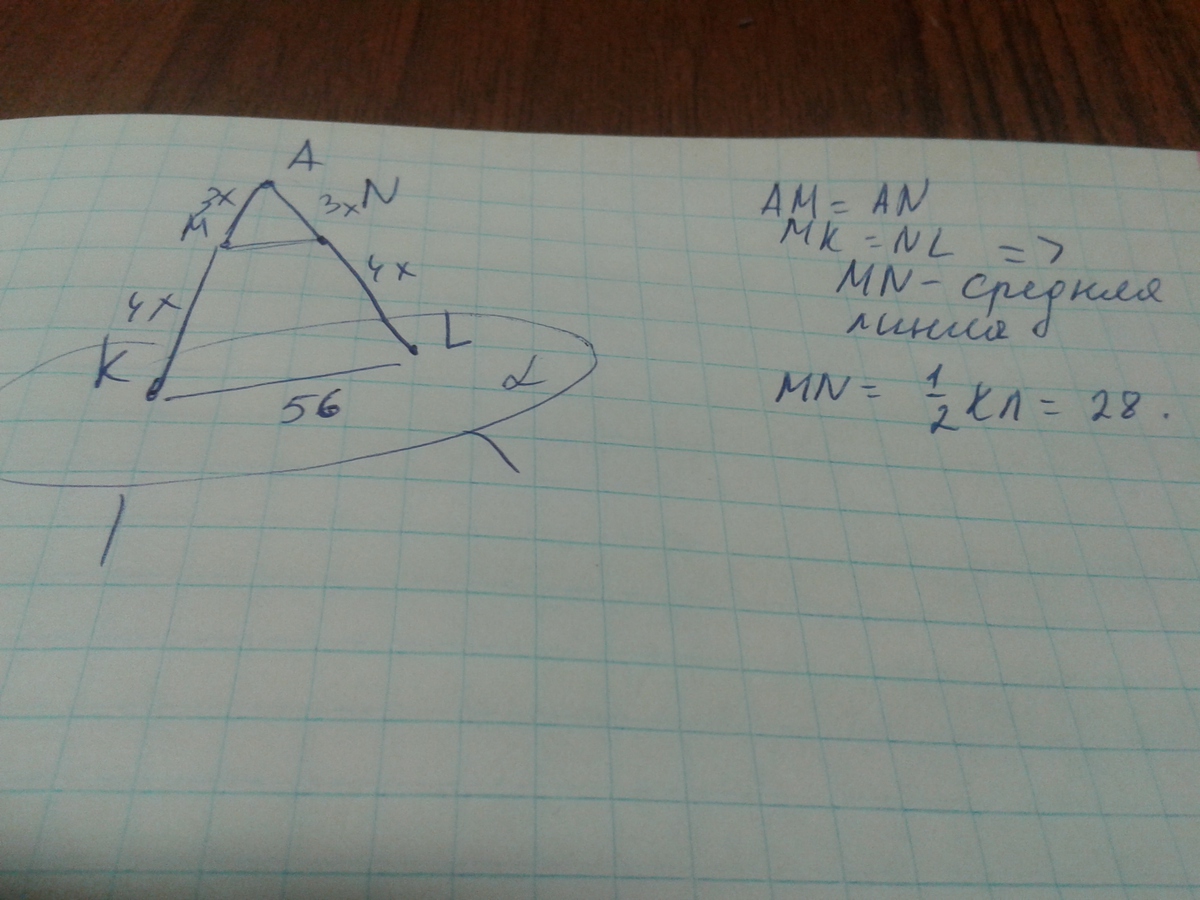 A
3x
3x N
M
4x
4x
K
L
56
α
AM = AN
MK = NL =>
MN - средняя
линия
MN = 1/2 КЛ = 28.